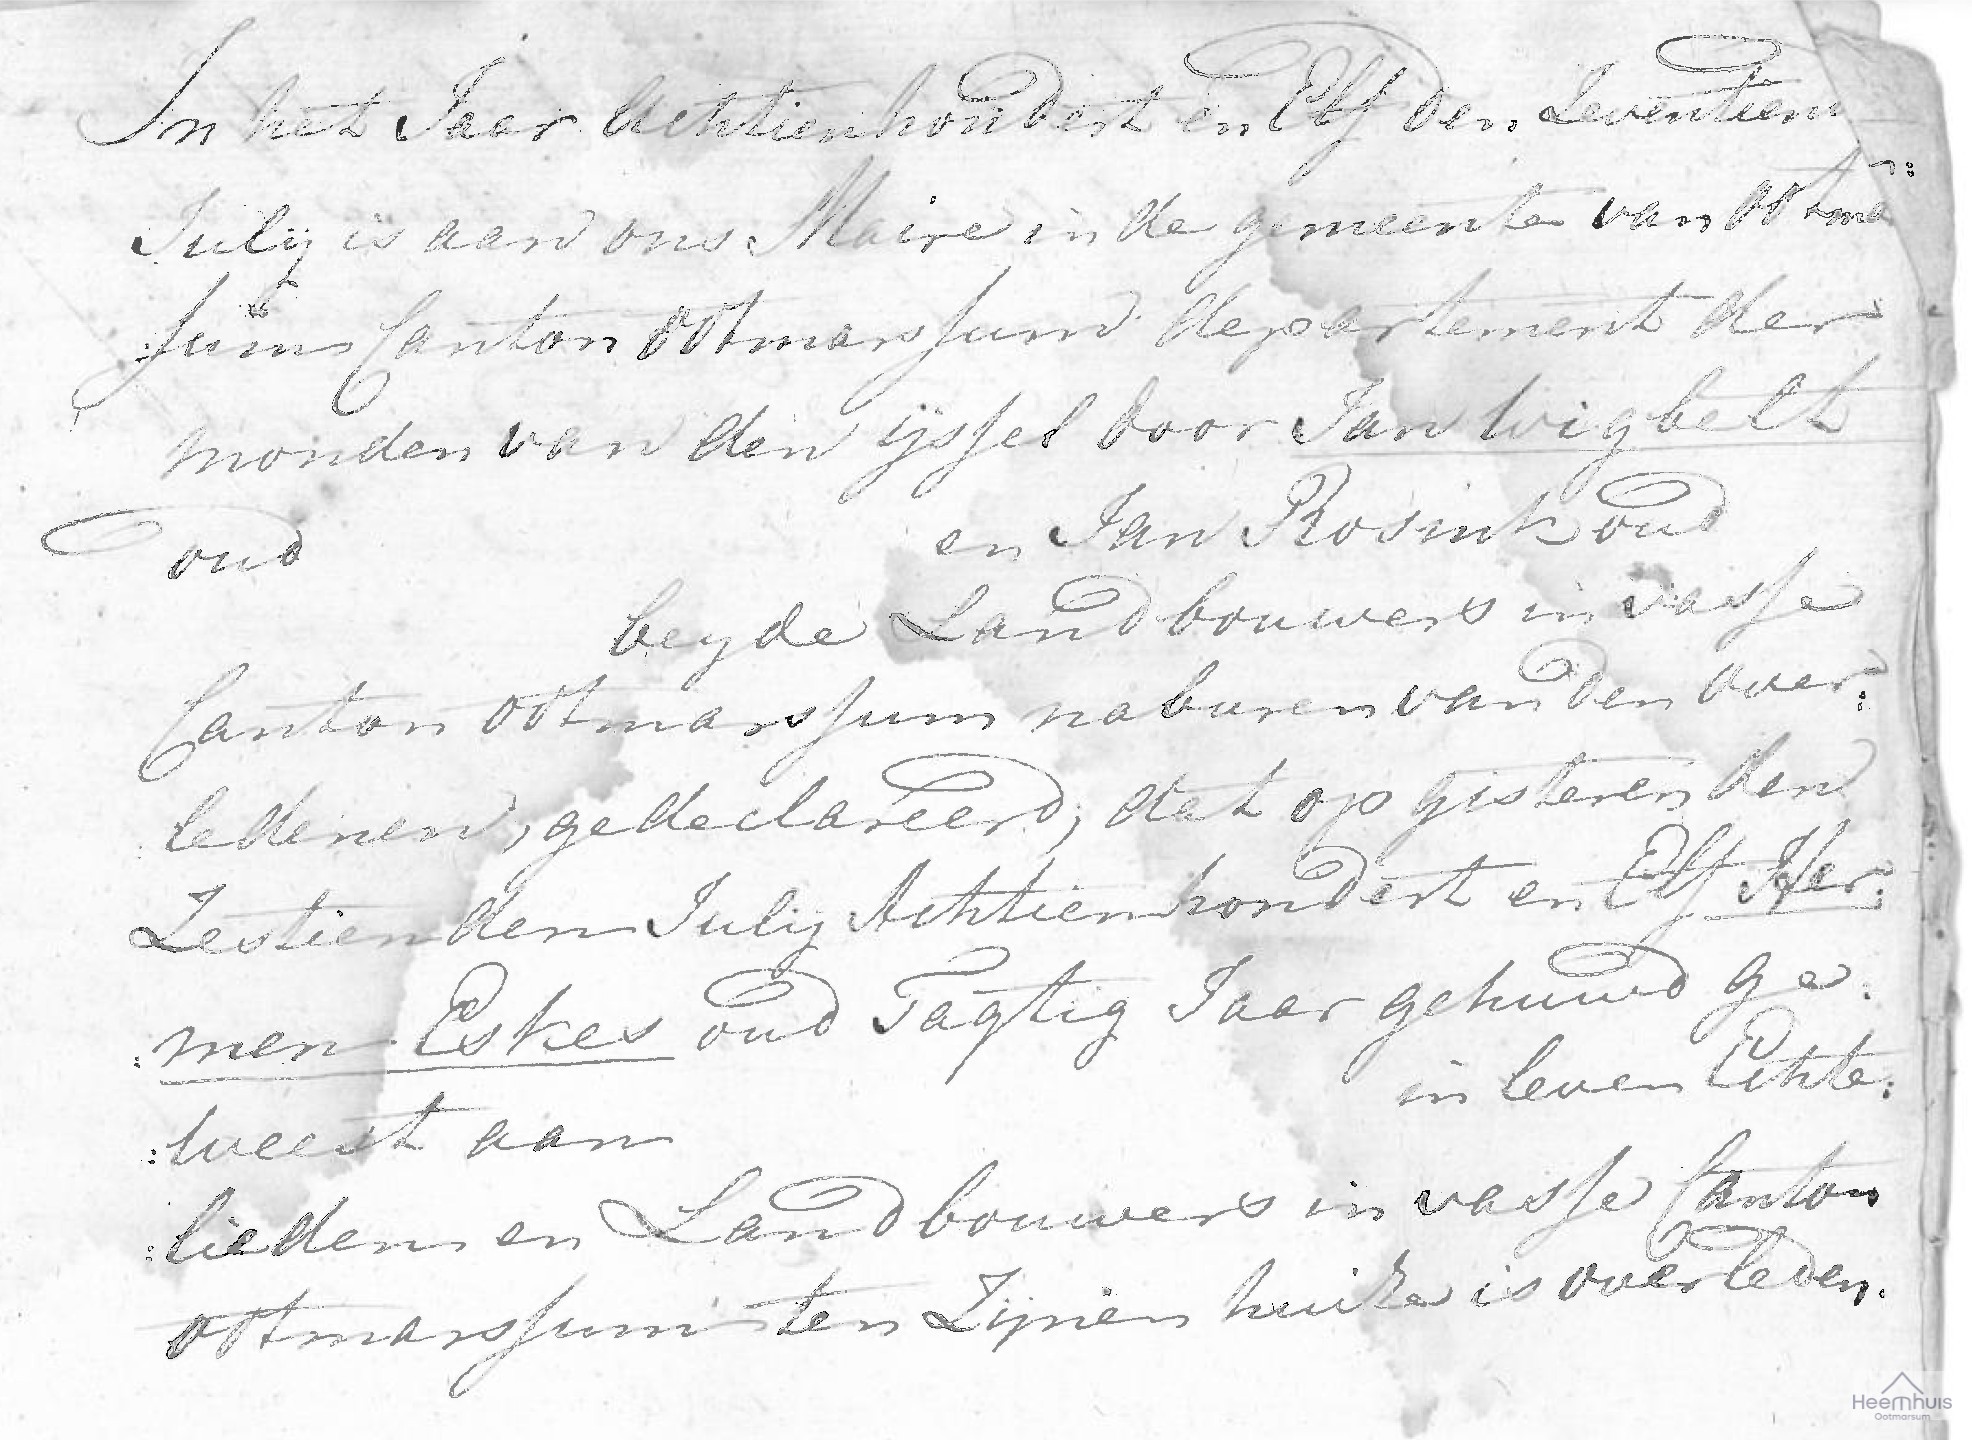 In het Jaar Achtienhondert en Elf den Zeventiem
July is aan ons Maire in de gemeente van Ootmar:
:sum Canton Ootmarssum departement der
monden van den ijssel door Jan Wigbelt
oud en Jan Rosink oud
beyde Landbouwers in vasse
Canton ootmarssum naburen van den over:
ledenen, gedeclareerd, dat op gisteren den
Zestienden July Achtienhondert en Elf Her:
:men Eskes oud Tagtig Jaar gehuwd ge:
:weest aan in leven Echte:
:lieden en Landbouwers in vasse Canton
ootmarssum ten Zijnen huize is overleden.
Heemhuis
Ootmarsum